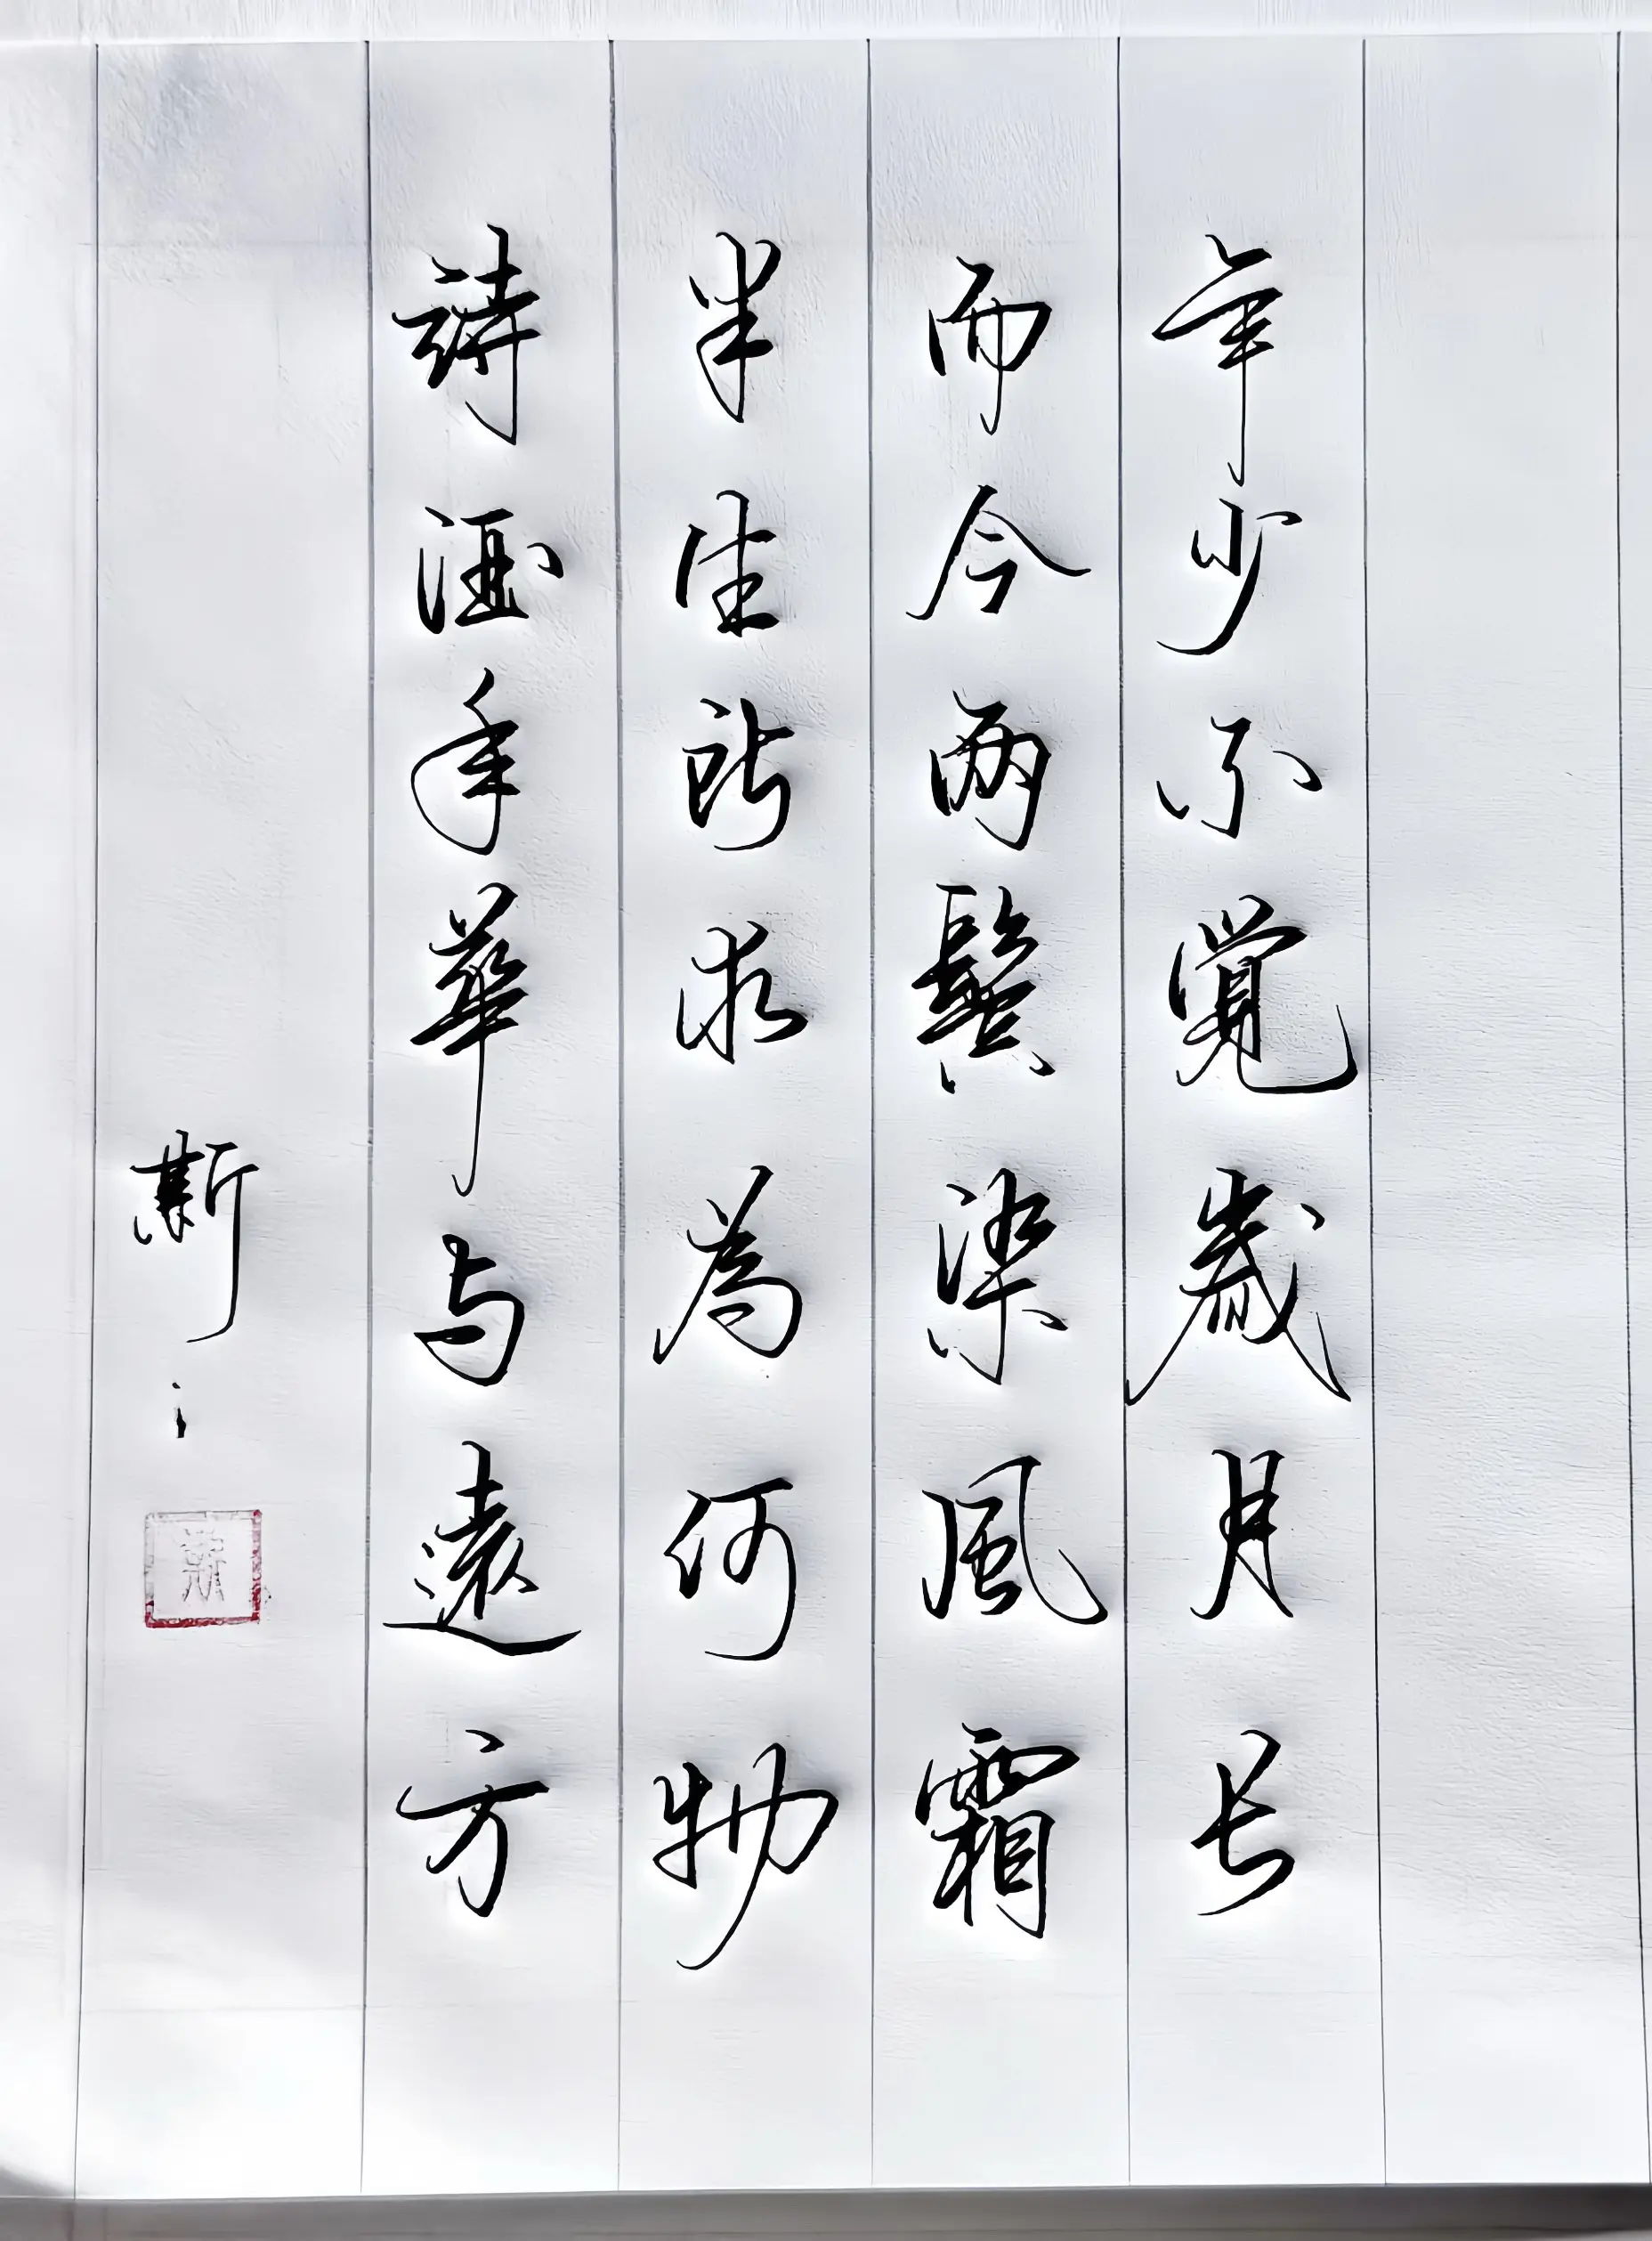 年少不覺歲月長
而今兩鬢染風霜
半生所求為何物
詩酒年華与遠方
斯